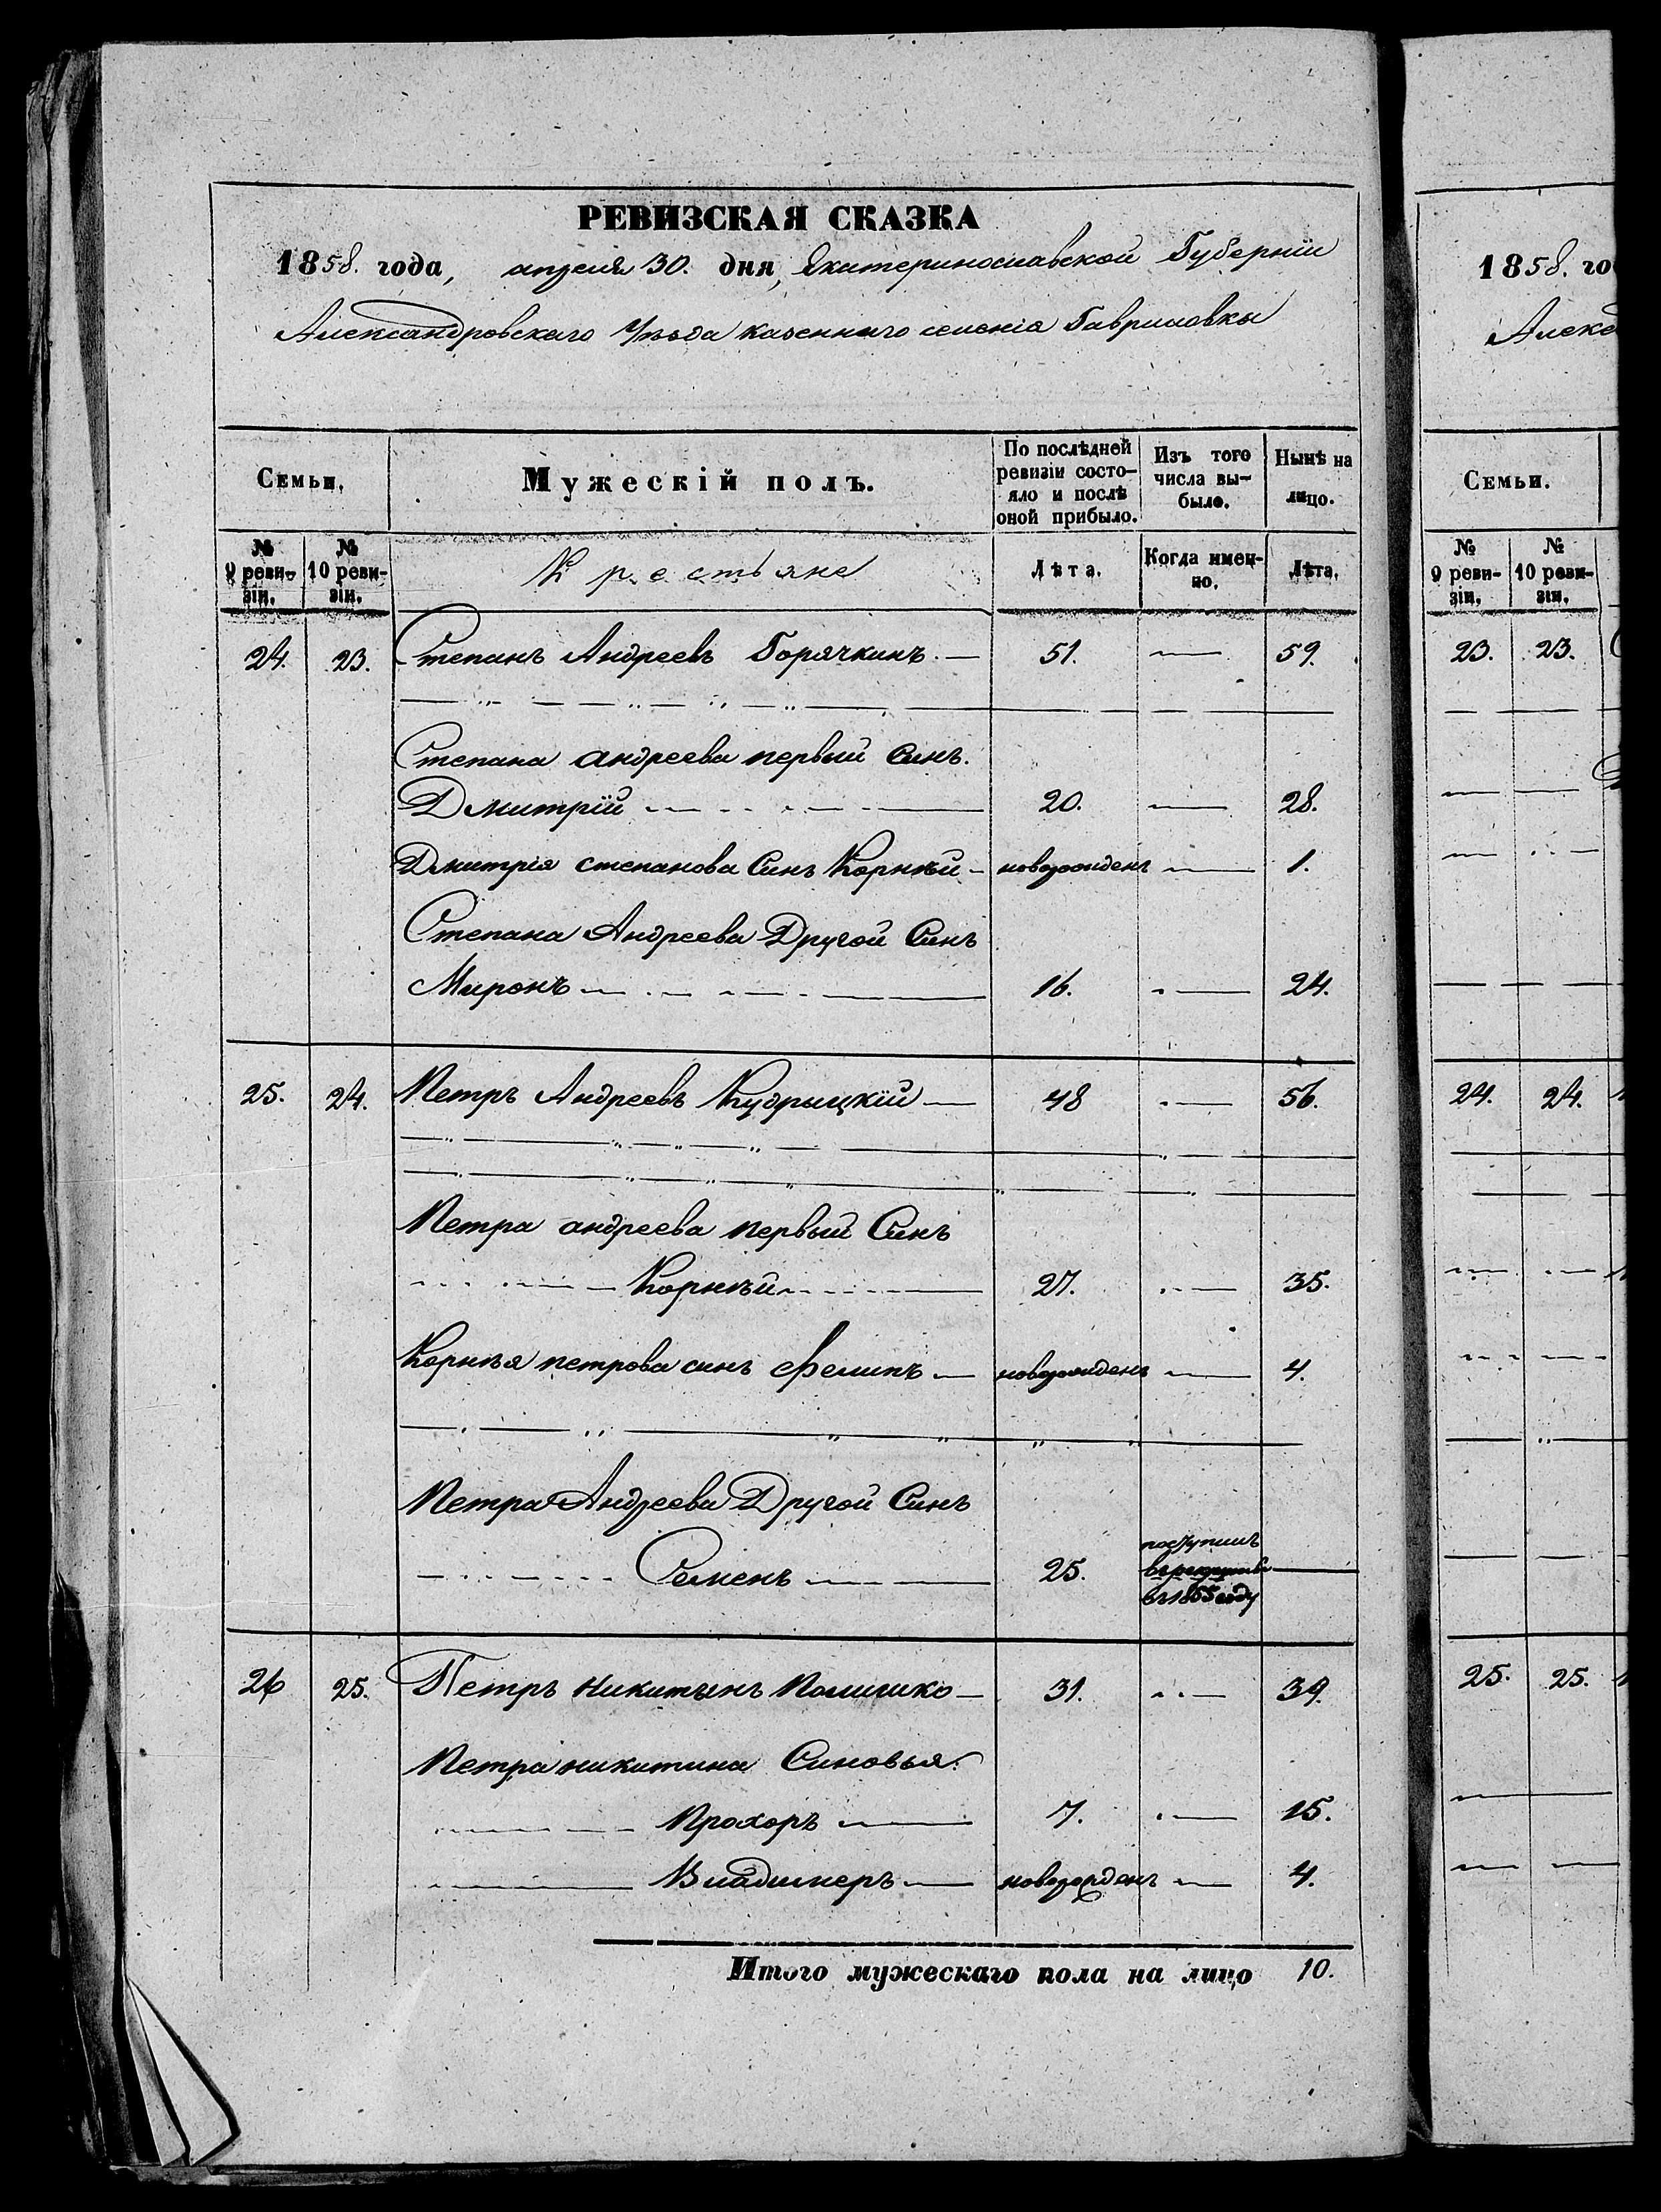 РЕВИЗСКАЯ СКАЗКА
1858. года, апреля 30. дня, Екатеринославской Губернїи
Александровскаго Уѣзда казеннаго селенія Гавриловки
Семьи.
Мужескій полъ.
По послѣдней ревизіи состо-
яло и послѣ
оной прибыло.
Изъ того
числа вы-
было.
Нынѣ на
лицо.
№ 9 реви-
зіи.
№ 10 реви-
зіи.
Крестьяне
Лѣта.
Когда имен-
но.
Лѣта.
24. 23. Степанъ Андреевъ Горячкинъ. — 51. — 59.
Степана андреева первый Синъ.
Дмитрїй 20. — 28.
Дмитрія степанова Синъ Корнѣй — новорожденъ — 1.
Степана Андреева Другой Синъ
Миронъ 16. — 24.
25. 24. Петръ Андреевъ Кудрицкїй — 48 — 56.
Петра андреева первый Синъ
Корнѣй 27. — 35.
Корнѣя петрова синъ Филипъ — новорожденъ — 4.
Петра Андреева Другой Синъ
Семенъ 25.
поступилъ
в рекруты
въ 1855 году
26 25. Петръ Никитынъ — 31. — 39.
Петра никитина Синовья.
Прохоръ 7. — 15.
Владимеръ — новорожденъ — 4.
Итого мужескаго пола на лицо 10.
1858. го
Алекс
Семьи.
№ 9 реви-
зіи.
№ 10 реви-
зіи.
23. 23.
24. 24.
25. 25.